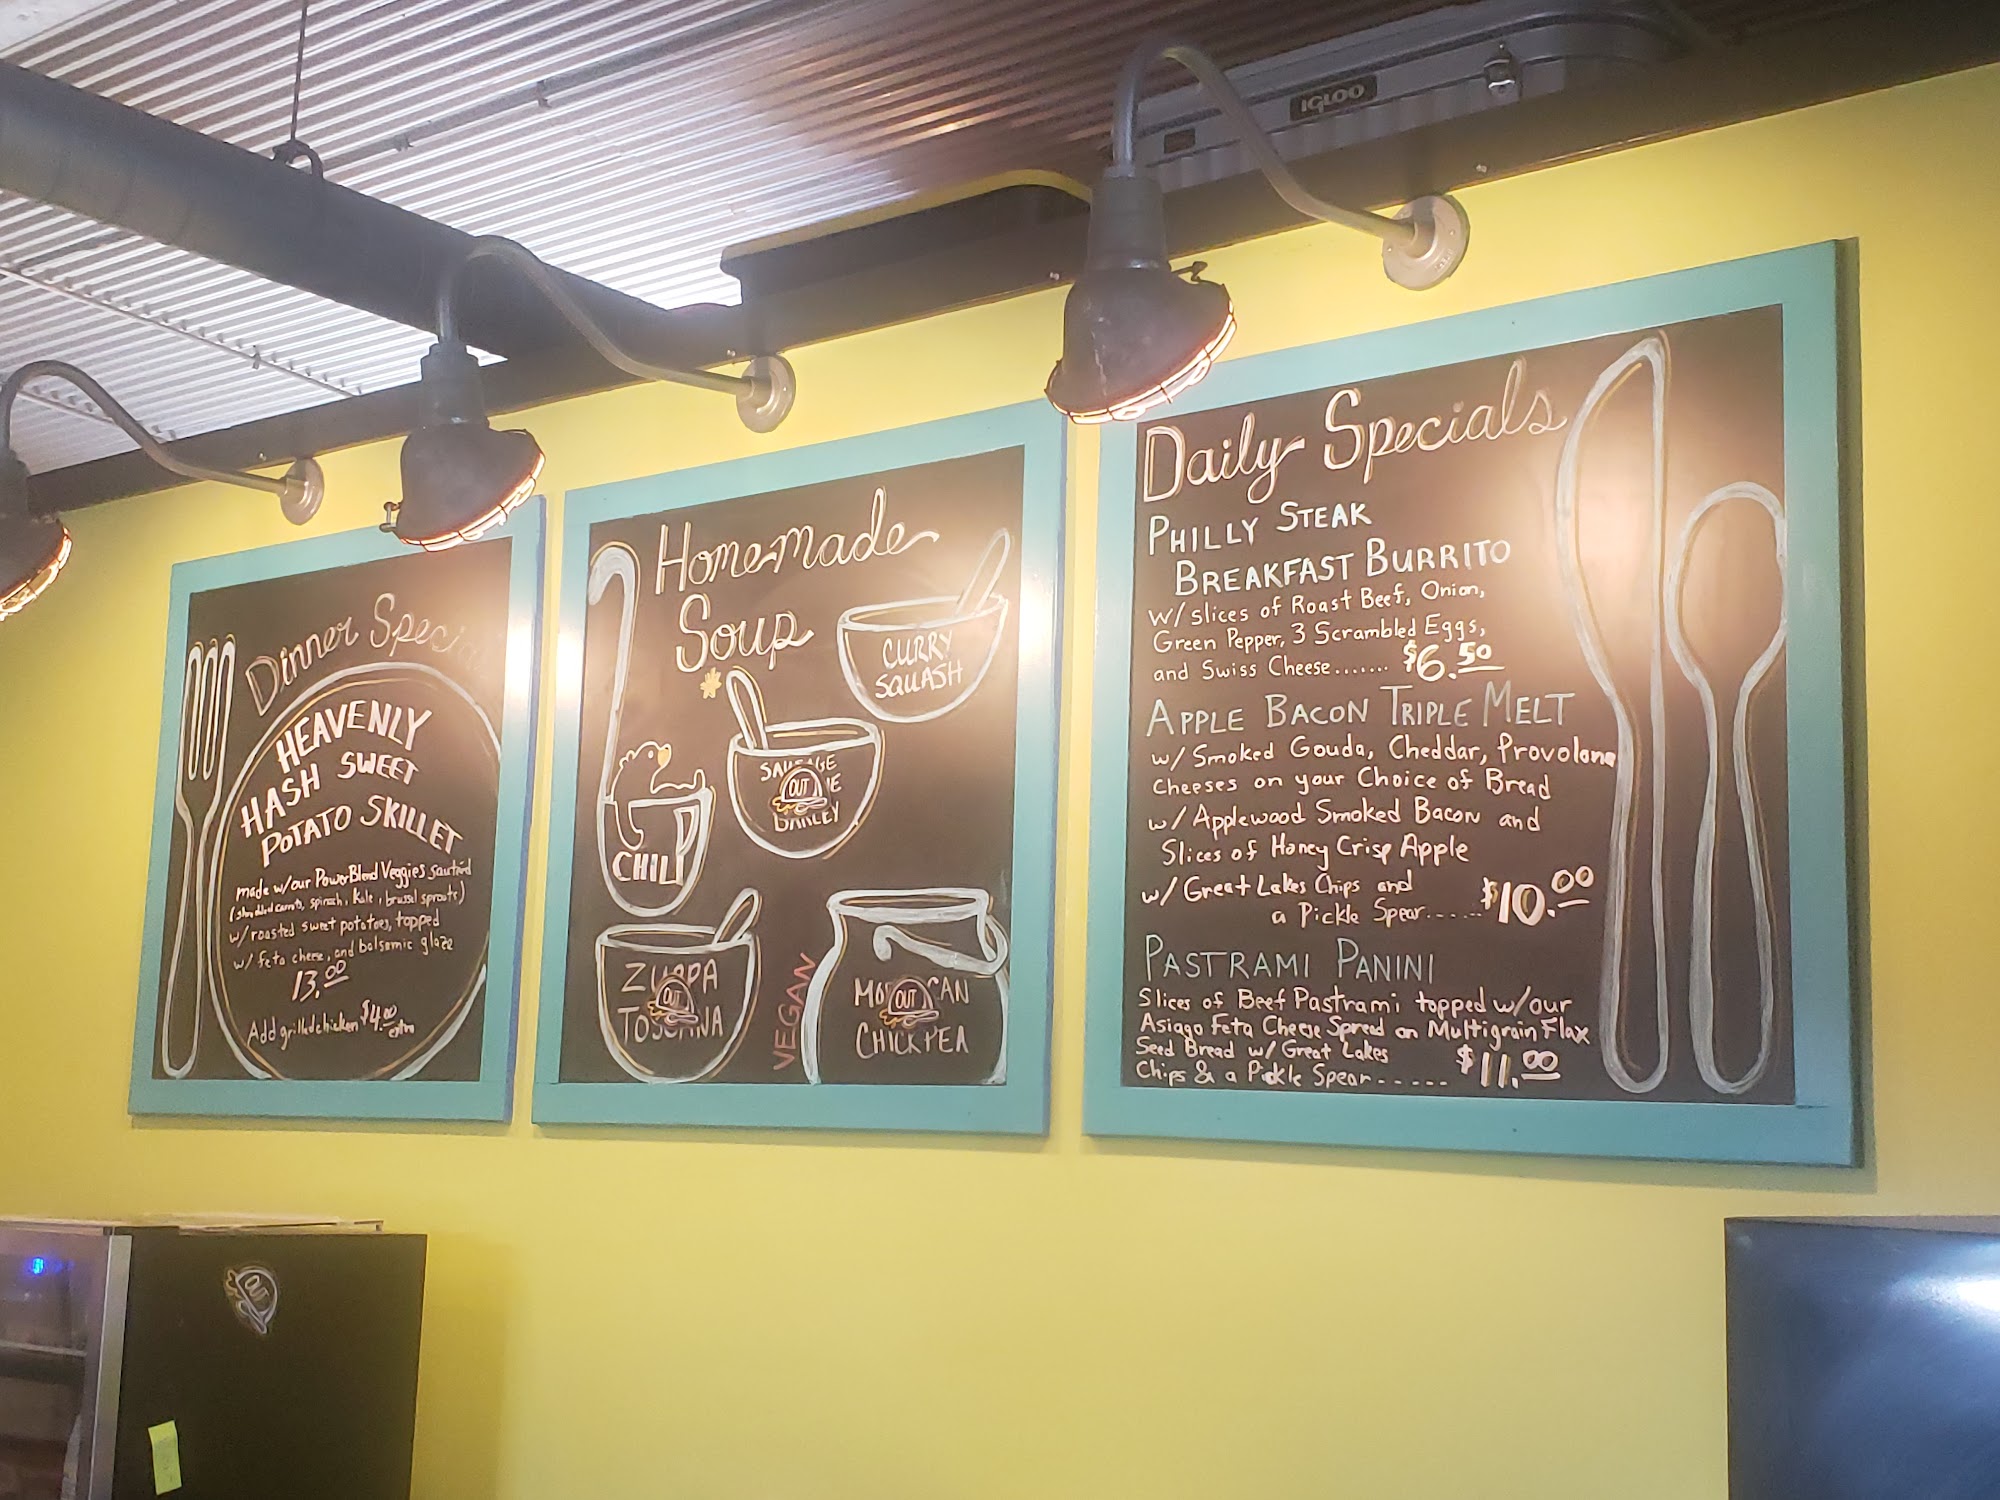 IGLOO
Dinner Specia
HEAVENLY
HASH SWEET
POTATO SKILLET
made w/our PowerBlend Veggies sautéed
(shredded carrots, spinach, kale, brussel sprouts)
w/roasted sweet potatoes, topped
w/ feta cheese, and balsamic glaze
13.00
Add grilled chicken $4.00 extra
Homemade
Soup
CURRY
SQUASH
OUT
BARLEY
CHILI
ZUPPA
OUT
TOSCANA
VEGAN
OUT
CHICKPEA
Daily Specials
PHILLY STEAK
BREAKFAST BURRITO
w/ slices of Roast Beef, Onion,
Green Pepper, 3 Scrambled Eggs,
and Swiss Cheese....... $6.50
APPLE BACON TRIPLE MELT
w/ Smoked Gouda, Cheddar, Provolone
Cheeses on your Choice of Bread
w/ Applewood Smoked Bacon and
Slices of Honey Crisp Apple
w/ Great Lakes Chips and
a Pickle Spear...... $10.00
PASTRAMI PANINI
Slices of Beef Pastrami topped w/our
Asiago Feta Cheese Spread on Multigrain Flax
Seed Bread w/ Great Lakes
Chips & a Pickle Spear..... $11.00
OUT